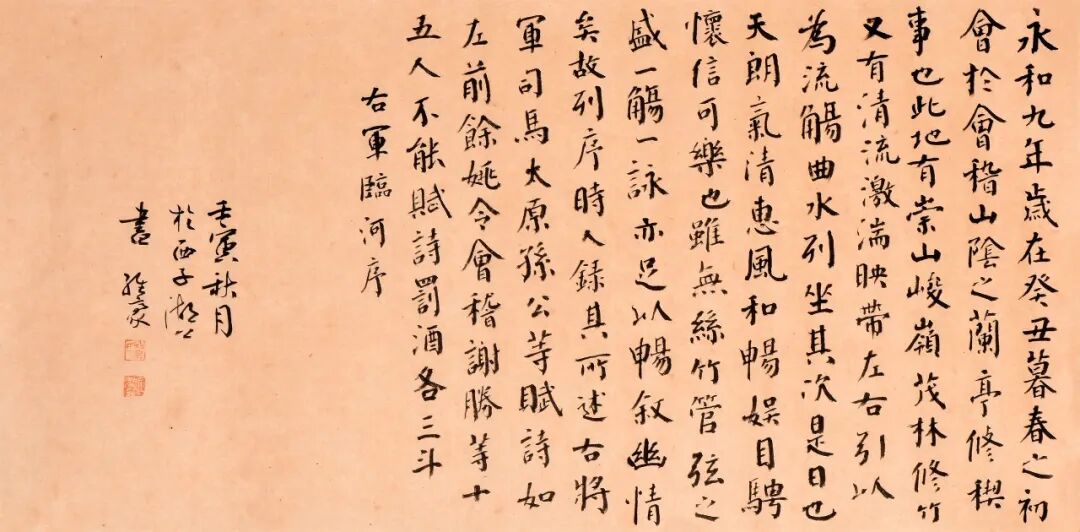 永和九年歲在癸丑暮春之初
會於會稽山陰之蘭亭修禊
事也此地有崇山峻嶺茂林修竹
又有清流激湍映帶左右引以
為流觴曲水列坐其次是日也
天朗氣清惠風和暢娛目騁
懷信可樂也雖無絲竹管弦之
盛一觴一詠亦足以暢敘幽情
矣故列序時人錄其所述右將
軍司馬太原孫公等賦詩如
左前餘姚令會稽謝勝等十
五人不能賦詩罰酒各三斗
右軍臨河序
壬寅秋月
於西子湖上
書